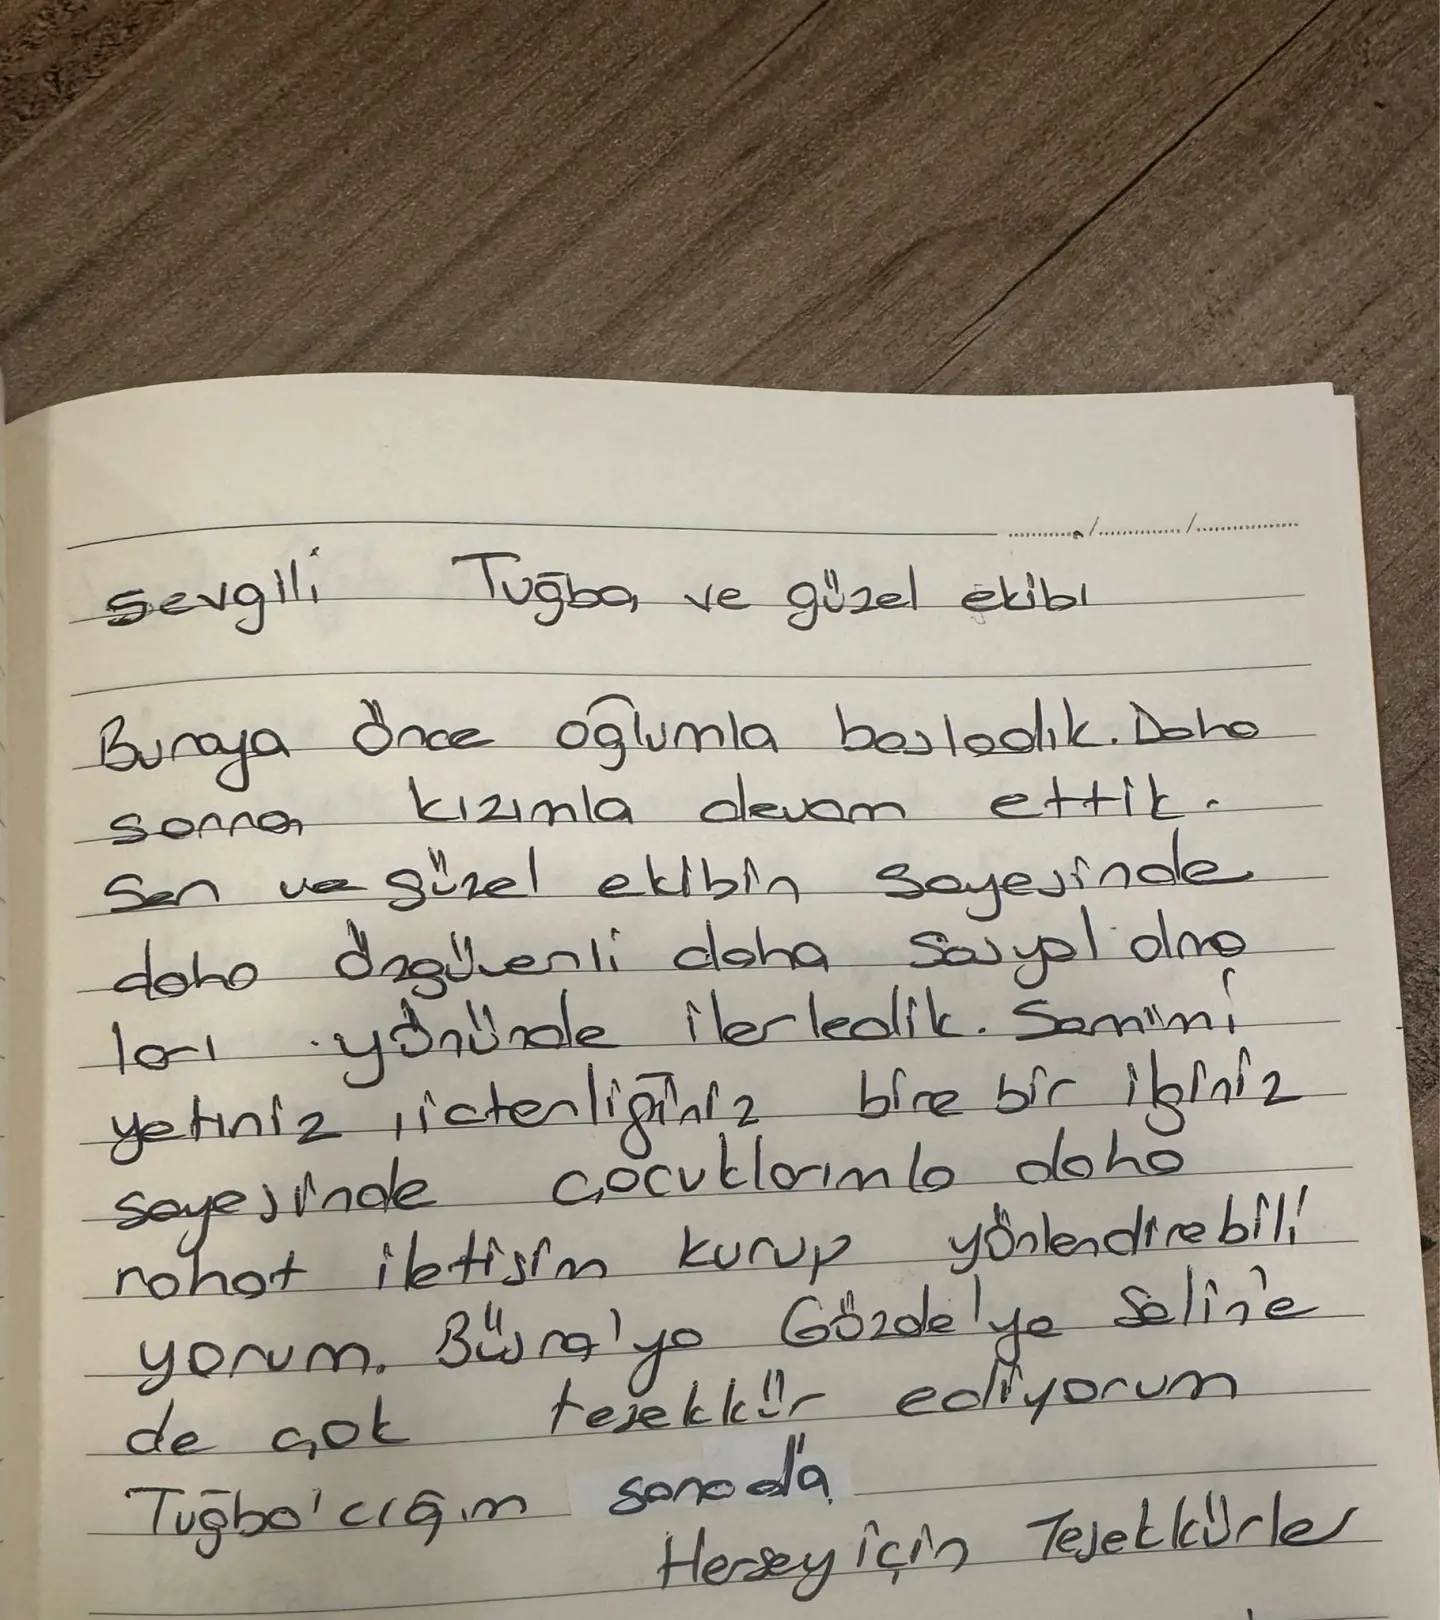 Sevgili Tuğba ve güzel ekibi
Buraya önce oğlumla başladık. Daha
sonra kızımla devam ettik.
Sen ve güzel ekibin sayesinde
daha özgüvenli daha sosyal olma
ları yönünde ilerledik. Samimi
yetiniz, içtenliğiniz bire bir ilginiz
sayesinde çocuklarımla daha
rahat iletişim kurup yönlendirebili
yorum. Büşra'ya Gözde'ye Selin'e
de çok teşekkür ediyorum
Tuğba'cığım sanada
Herşey için Teşekkürler